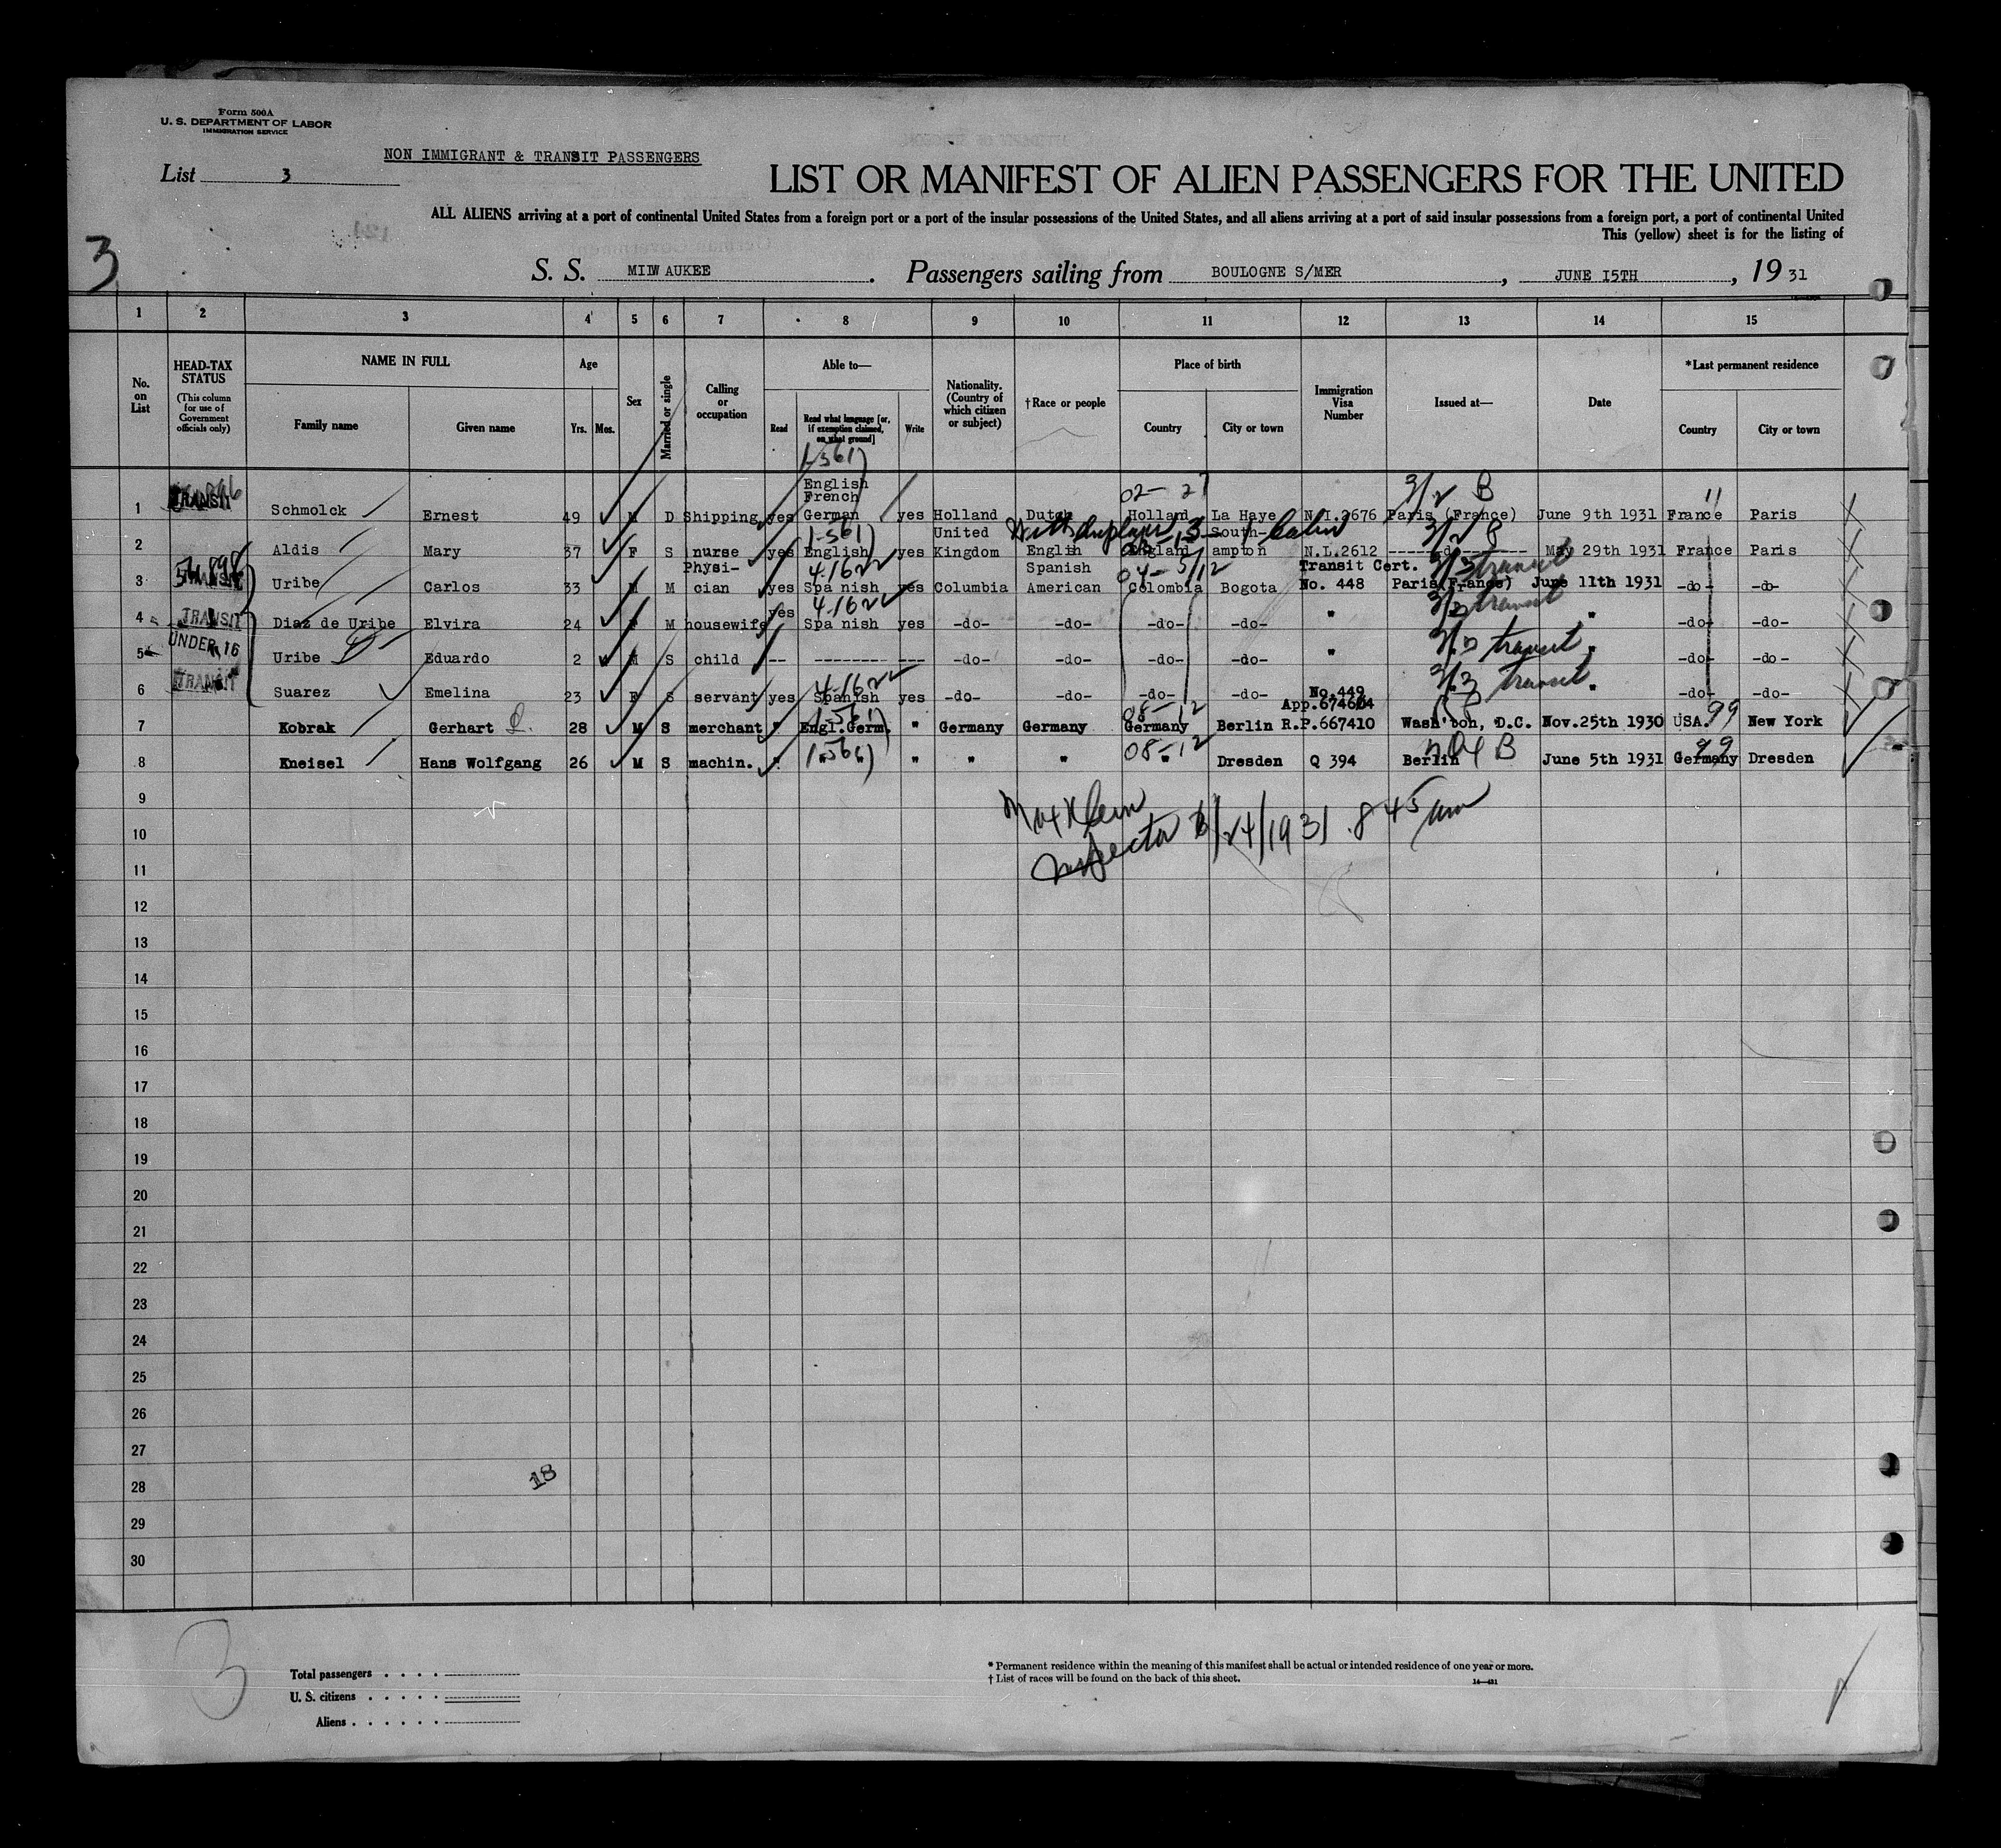 Form 500A
U. S. DEPARTMENT OF LABOR
IMMIGRATION SERVICE
NON IMMIGRANT & TRANSIT PASSENGERS
List 3
LIST OR MANIFEST OF ALIEN PASSENGERS FOR THE UNITED
ALL ALIENS arriving at a port of continental United States from a foreign port or a port of the insular possessions of the United States, and all aliens arriving at a port of said insular possessions from a foreign port, a port of continental United
This (yellow) sheet is for the listing of
3
S. S. MILWAUKEE. Passengers sailing from BOULOGNE S/MER, JUNE I5TH, 19 31
1 2 3 4 5 6 7 8 9 10 11 12 13 14 15
No. on List
HEAD-TAX STATUS
(This column for use of Government officials only)
NAME IN FULL
Family name Given name
Age
Yrs. Mos.
Sex
Married or single
Calling or occupation
Able to—
Read Read what language [or, if exemption claimed, on what ground] Write
Nationality. (Country of which citizen or subject)
†Race or people
Place of birth
Country City or town
Immigration Visa Number
Issued at—
Date
*Last permanent residence
Country City or town
1-561)
02-27 3/2 B 11
1 TRANSIT Schmolck Ernest 49 M D Shipping yes English French German yes Holland Dutch Holland La Haye N.I.2676 Paris (France) June 9th 1931 France Paris
1-561) 3/2 B
2 Aldis Mary 37 F S nurse yes English yes United Kingdom English England South-ampton N.L.2612 -----d------- May 29th 1931 France Paris
4-1622 04-5/12 3/3 transit
3 TRANSIT Uribe Carlos 33 M M Physi-cian yes Spa nish yes Columbia Spanish American Colombia Bogota Transit Cert. No. 448 Paris(France) June 11th 1931 -do- -do-
4-1622 3/3 transit
4 TRANSIT Diaz de Uribe Elvira 24 F M housewife yes Spa nish yes -do- -do- -do- -do- " " -do- -do-
3/3 transit
5 UNDER 16 Uribe Eduardo 2 M S child -- -------- --- -do- -do- -do- -do- " " -do- -do-
4-1622 3/3 transit
6 TRANSIT Suarez Emelina 23 F S servant yes Spanish yes -do- -do- -do- -do- No.449 " -do- -do-
1-561) 08-12 99
7 Kobrak Gerhart 28 M S merchant " Engl.Germ. " Germany Germany Germany Berlin App.674604 R.P.667410 Wash'ton, D.C. Nov.25th 1930 USA. New York
1-561) 08-12 B 99
8 Kneisel Hans Wolfgang 26 M S machin. " " " " " " " Dresden Q 394 Berlin June 5th 1931 Germany Dresden
9
Max Klein
10
Inspector 6/24/1931 8 45 am
11
12
13
14
15
16
17
18
19
20
21
22
23
24
25
26
27
28 18
29
30
3
Total passengers . . . .
U. S. citizens . . . . .
Aliens . . . . . .
* Permanent residence within the meaning of this manifest shall be actual or intended residence of one year or more.
† List of races will be found on the back of this sheet.
14—421